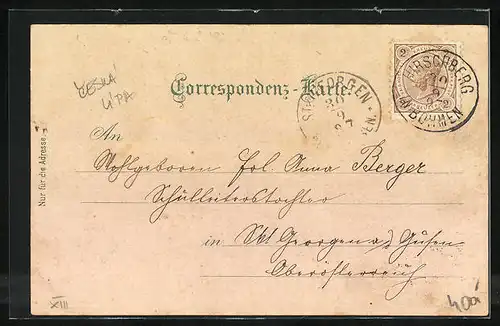 Correspondenz-Karte.
ČESKÁ
LÍPA
2
HIRSCHBERG
IN BÖHMEN
ST. GEORGEN
30
9
97
Nur für die Adresse.
An
Wohlgeboren Frl. Anna Berger
Schulleiterstochter
in Skt Georgen a/d Gusen
Oberösterreich
XIII
40a